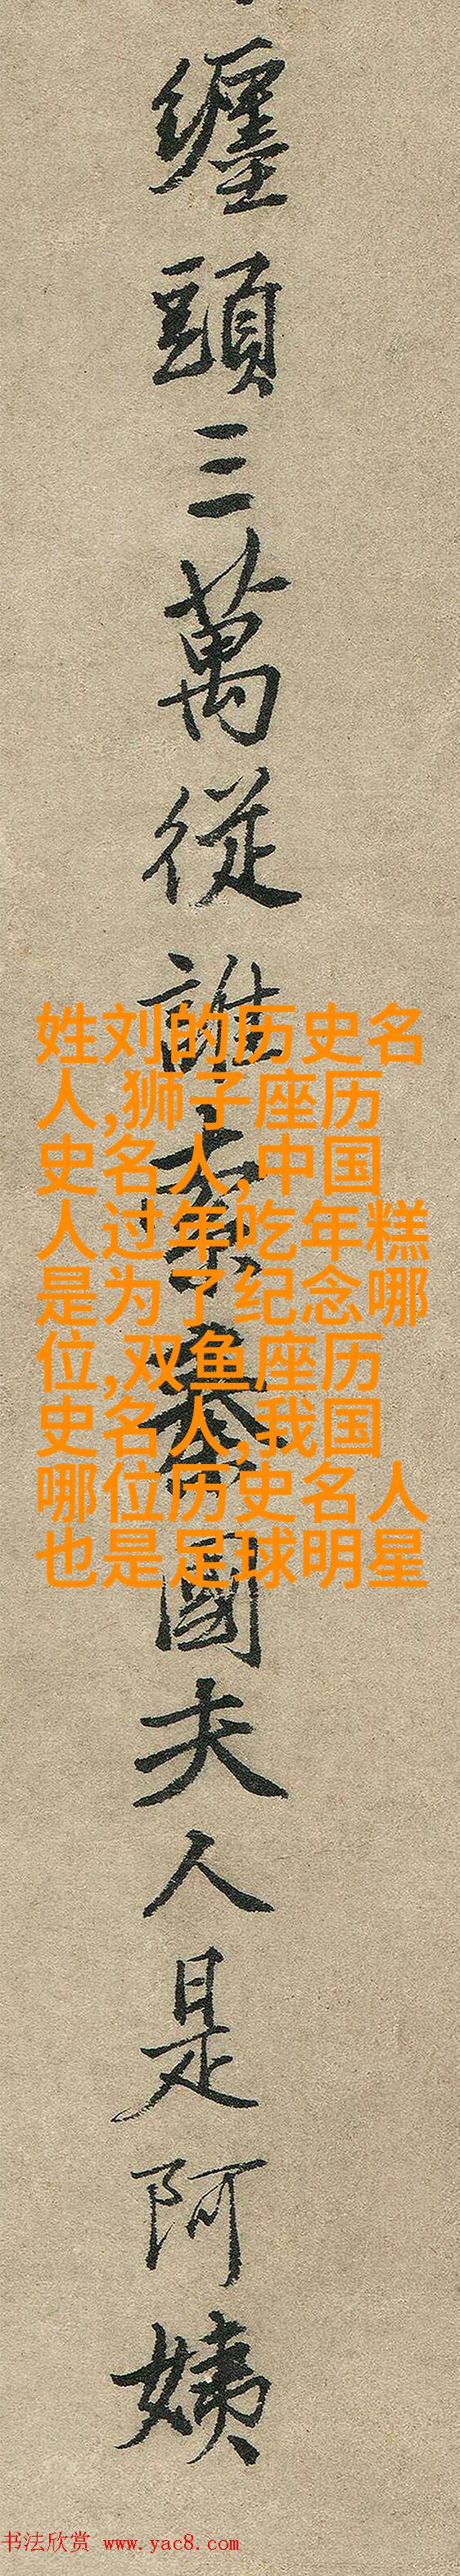 纏頭三萬從誰索秦國夫人是阿姨
姓刘的历史名
人,狮子座历
史名人,中国
人过年吃年糕
是为了纪念哪
位,双鱼座历
史名人,我国
哪位历史名人
也是足球明星
书法欣赏 www.yac8.com